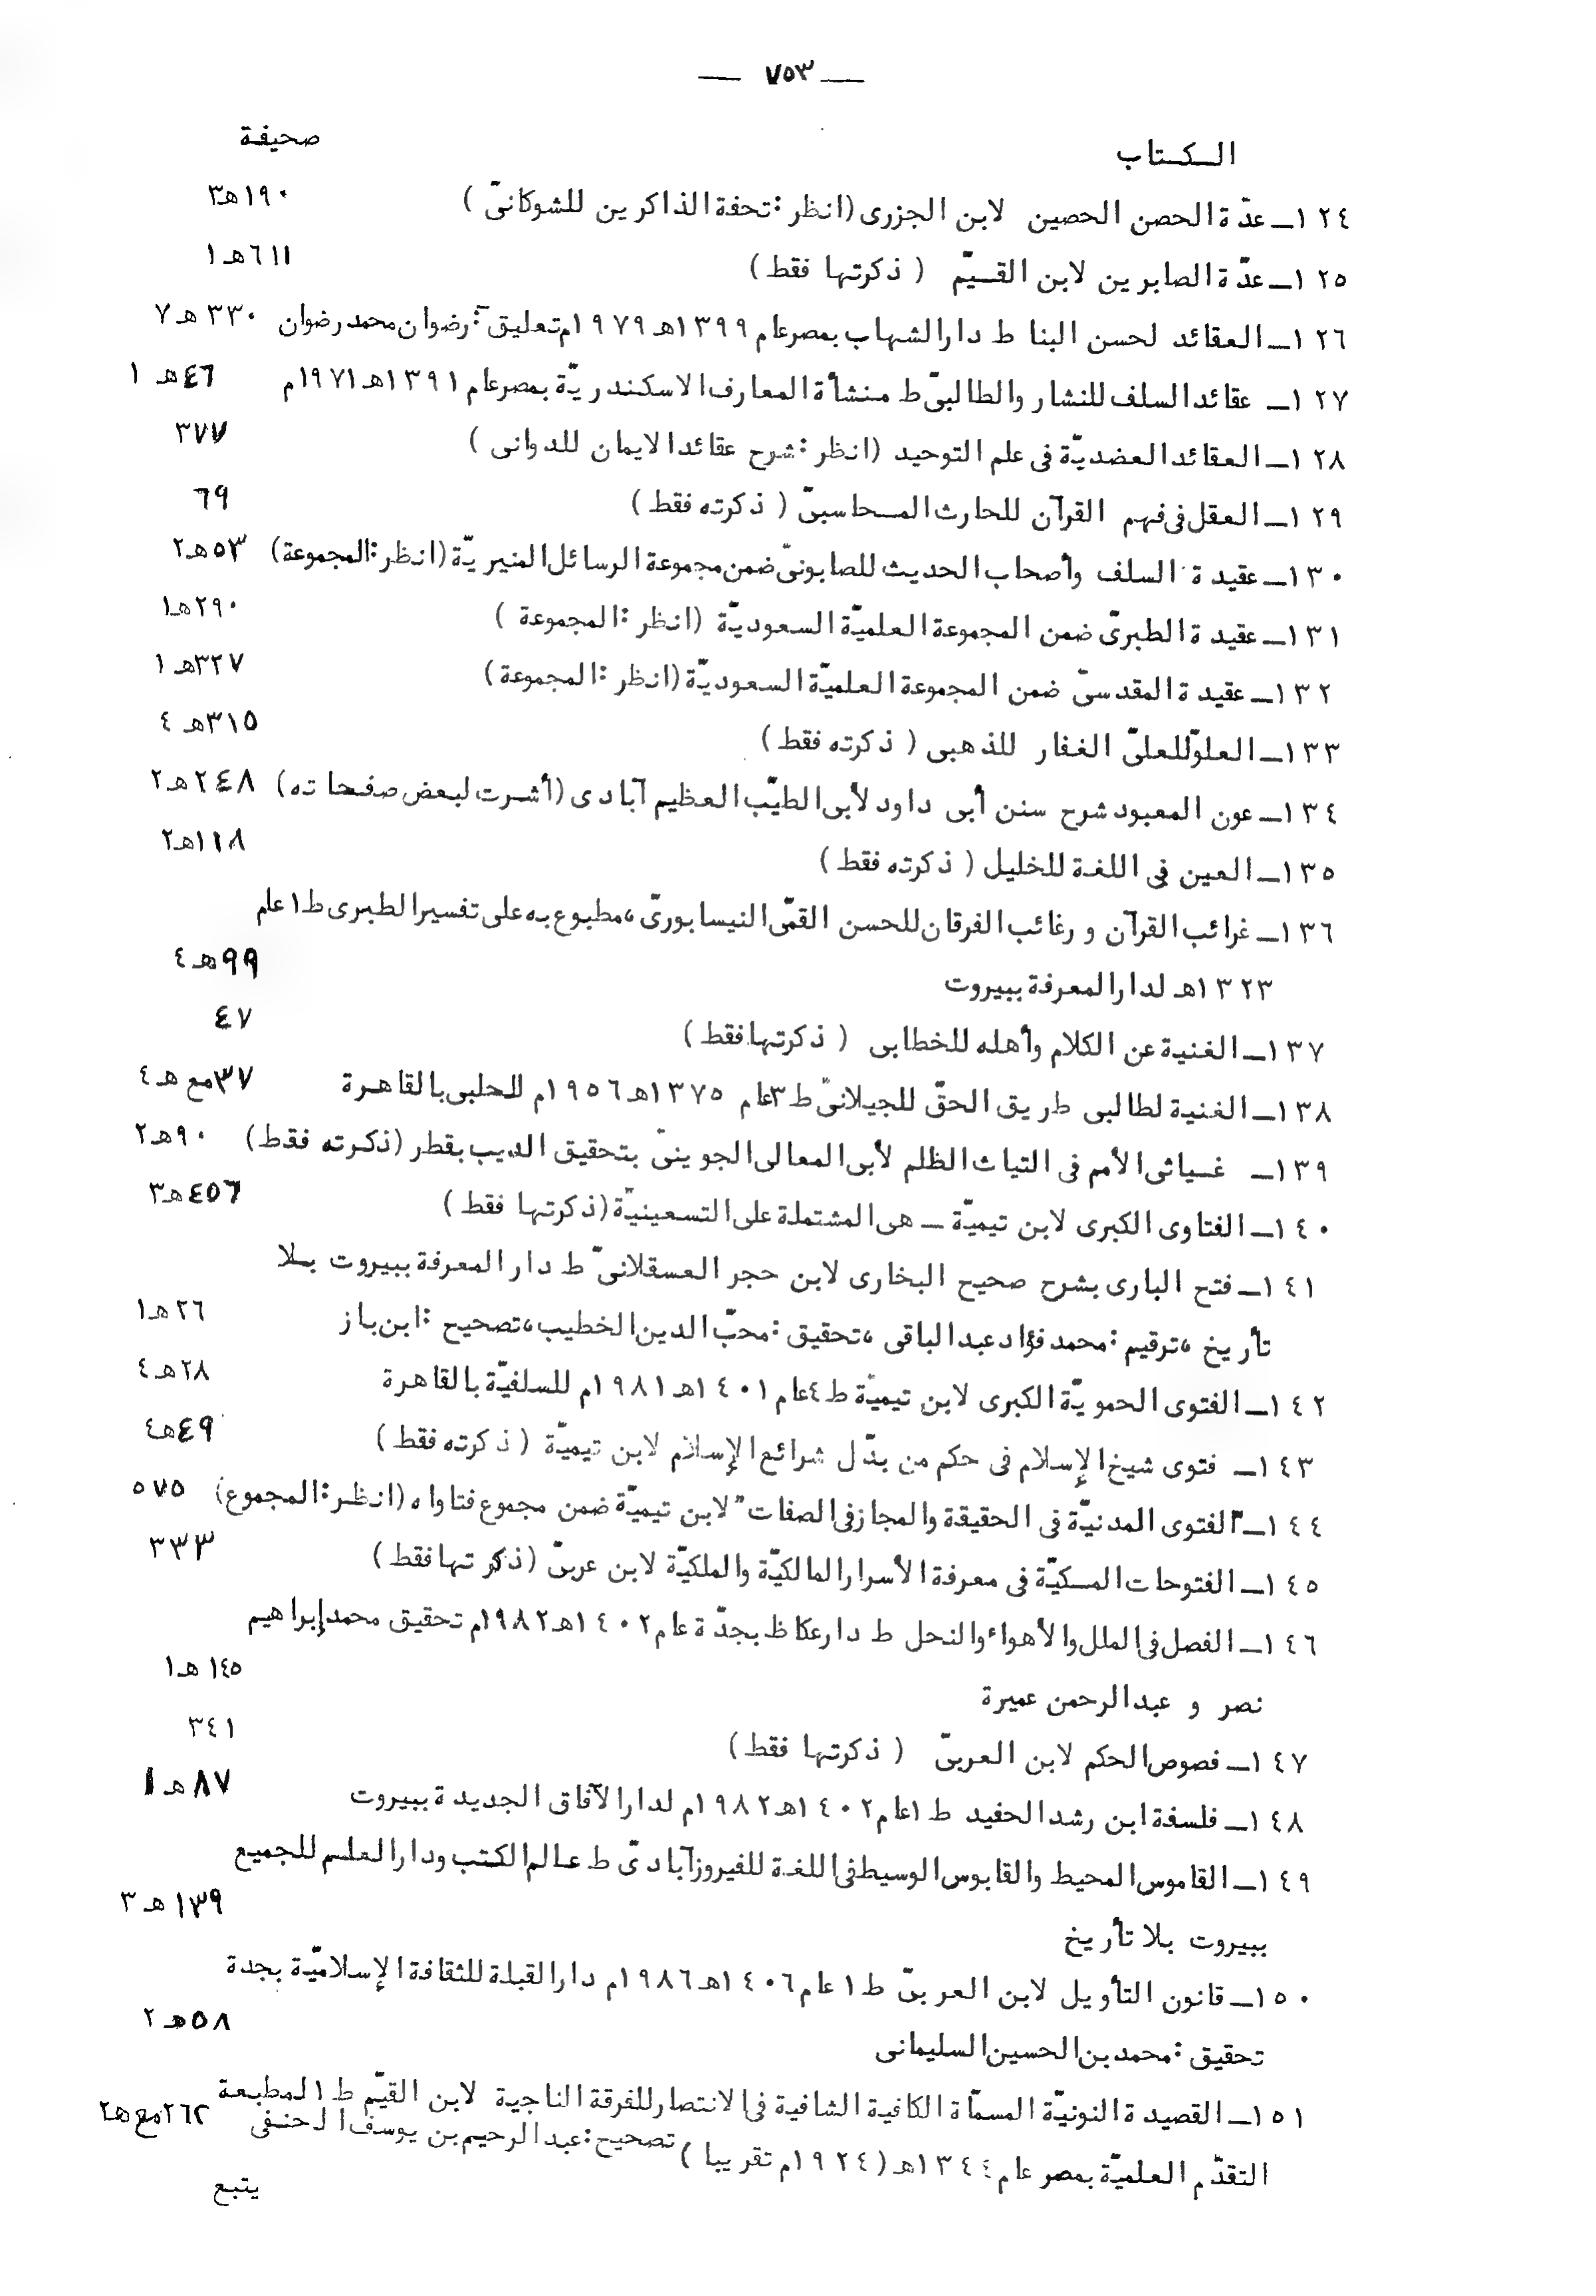 — ٧٥٣ —
الـكـتاب صحيفة
١٢٤ـ عدّة الحصن الحصين لابن الجزرى (انظر: تحفة الذاكرين للشوكانىّ) ١٩٠هـ٣
١٢٥ـ عدّة الصابرين لابن القـيّم (ذكرتها فقط) ٦١١هـ١
١٢٦ـ العقائد لحسن البنا ط دار الشهاب بمصر عام ١٣٩٩هـ ١٩٧٩م تعليق: رضوان محمد رضوان ٣٣٠هـ٧
١٢٧ـ عقائد السلف للنشار والطالبىّ ط منشأة المعارف الاسكندريّة بمصر عام ١٣٩١هـ ١٩٧١م ٤٦هـ ١
١٢٨ـ العقائد العضديّة فى علم التوحيد (انظر: شرح عقائد الايمان للدوانى) ٣٧٧
١٢٩ـ العقل فى فهم القرآن للحارث المـحاسبىّ (ذكرته فقط) ٦٩
١٣٠ـ عقيدة السلف وأصحاب الحديث للصابونىّ ضمن مجموعة الرسائل المنيريّة (انظر: المجموعة) ٥٣هـ٢
١٣١ـ عقيدة الطبرىّ ضمن المجموعة العلميّة السعوديّة (انظر: المجموعة) ٢٩٠هـ١
١٣٢ـ عقيدة المقدسىّ ضمن المجموعة العلميّة السعوديّة (انظر: المجموعة) ٣٢٧هـ١
١٣٣ـ العلوّ للعلىّ الغفار للذهبى (ذكرته فقط) ٣١٥هـ ٤
١٣٤ـ عون المعبود شرح سنن أبى داود لأبى الطيّب العظيم آبادى (أشرت لبعض صفحاته) ٢٤٨هـ٢
١٣٥ـ العين فى اللغة للخليل (ذكرته فقط) ١١٨هـ٢
١٣٦ـ غرائب القرآن ورغائب الفرقان للحسن القمّى النيسابورىّ، مطبوع به على تفسير الطبرى ط١ عام
١٣٢٣هـ لدار المعرفة ببيروت ٩٩هـ ٤
١٣٧ـ الغنية عن الكلام وأهله للخطابى (ذكرتها فقط) ٤٧
١٣٨ـ الغنية لطالبى طريق الحقّ للجيلانىّ ط٣ عام ١٣٧٥هـ ١٩٥٦م للحلبى بالقاهرة ٣٧مع هـ٤
١٣٩ـ غـياثى الأمم فى التياث الظلم لأبى المعالى الجوينىّ بتحقيق الديب بقطر (ذكرته فقط) ٩٠هـ٢
١٤٠ـ الفتاوى الكبرى لابن تيميّة ـ هى المشتملة على التسعينيّة (ذكرتها فقط) ٤٥٦هـ٣
١٤١ـ فتح البارى بشرح صحيح البخارى لابن حجر العسقلانىّ ط دار المعرفة ببيروت بـلا
تأريخ، ترقيم: محمد فؤاد عبد الباقى، تحقيق: محبّ الدين الخطيب، تصحيح: ابن باز ٢٦هـ١
١٤٢ـ الفتوى الحمويّة الكبرى لابن تيميّة ط٤ عام ١٤٠١هـ ١٩٨١م للسلفيّة بالقاهرة ٢٨هـ٤
١٤٣ـ فتوى شيخ الإسلام فى حكم من بدّل شرائع الإسلام لابن تيميّة (ذكرته فقط) ٤٩هـ٤
١٤٤ـ "الفتوى المدنيّة فى الحقيقة والمجاز فى الصفات" لابن تيميّة ضمن مجموع فتاواه (انظر: المجموع) ٥٧٥
١٤٥ـ الفتوحات المـكيّة فى معرفة الأسرار المالكيّة والملكيّة لابن عربىّ (ذكرتها فقط) ٣٣٣
١٤٦ـ الفصل فى الملل والأهواء والنحل ط دار عكاظ بجدّة عام ١٤٠٢هـ ١٩٨٢م تحقيق محمد إبراهيم
نصر و عبد الرحمن عميرة ١٤٥هـ١
١٤٧ـ فصوص الحكم لابن العربىّ (ذكرتها فقط) ٣٤١
١٤٨ـ فلسفة ابن رشد الحفيد ط١ عام ١٤٠٢هـ ١٩٨٢م لدار الآفاق الجديدة ببيروت ٨٧هـ١
١٤٩ـ القاموس المحيط والقابوس الوسيط فى اللغة للفيروزآبادىّ ط عالم الكتب ودار العلم للجميع
ببيروت بلا تأريخ ١٣٩هـ ٣
١٥٠ـ قانون التأويل لابن العربىّ ط١ عام ١٤٠٦هـ ١٩٨٦م دار القبلة للثقافة الإسلاميّة بجدة
تحقيق: محمد بن الحسين السليمانى ٥٨هـ٢
١٥١ـ القصيدة النونيّة المسمّاة الكافية الشافية فى الانتصار للفرقة الناجية لابن القيّم ط١ المطبعة
التقدّم العلميّة بمصر عام ١٣٤٤هـ (١٩٢٤م تقريبا) تصحيح: عبد الرحيم بن يوسف الحنفى ٢٦٢مع هـ٢
يتبع